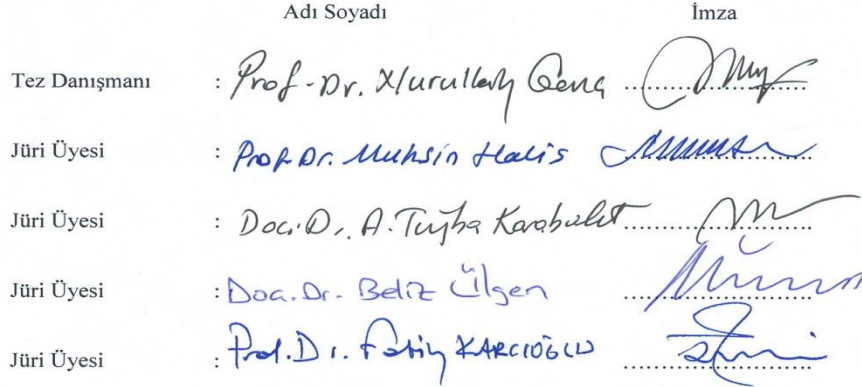 Adı Soyadı İmza
Tez Danışmanı : Prof. Dr. Nurullah Genç
Jüri Üyesi : Prof. Dr. Muhsin Halis
Jüri Üyesi : Doç. Dr. A. Tuğba Karabulut
Jüri Üyesi : Doç. Dr. Beliz Ülgen
Jüri Üyesi : Prof. Dr. Fatih KARCIOĞLU